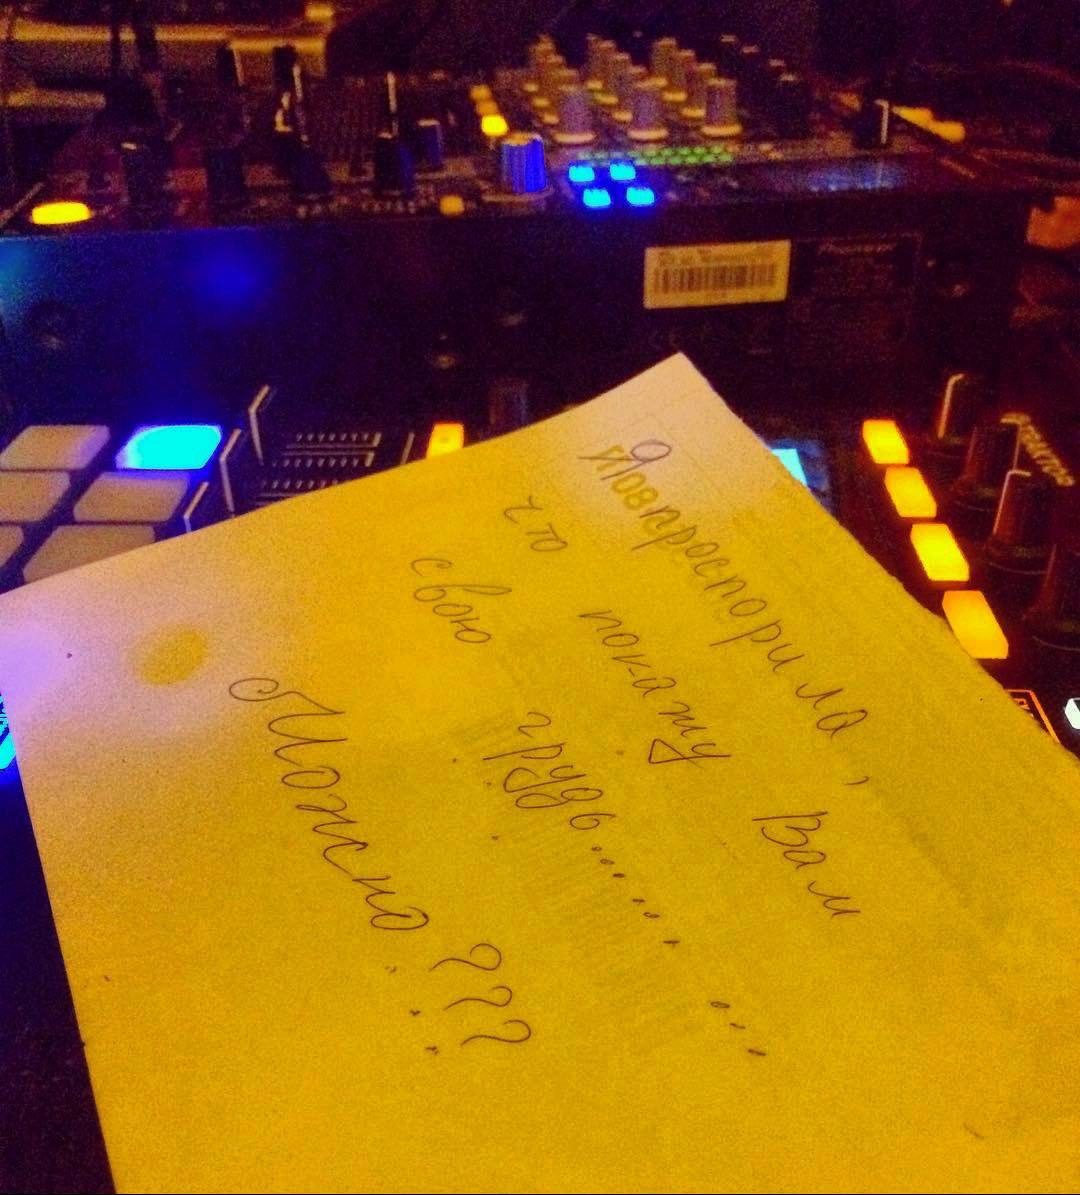 Я поспорила,
что покажу Вам
свою грудь...........
Можно???
Pioneer